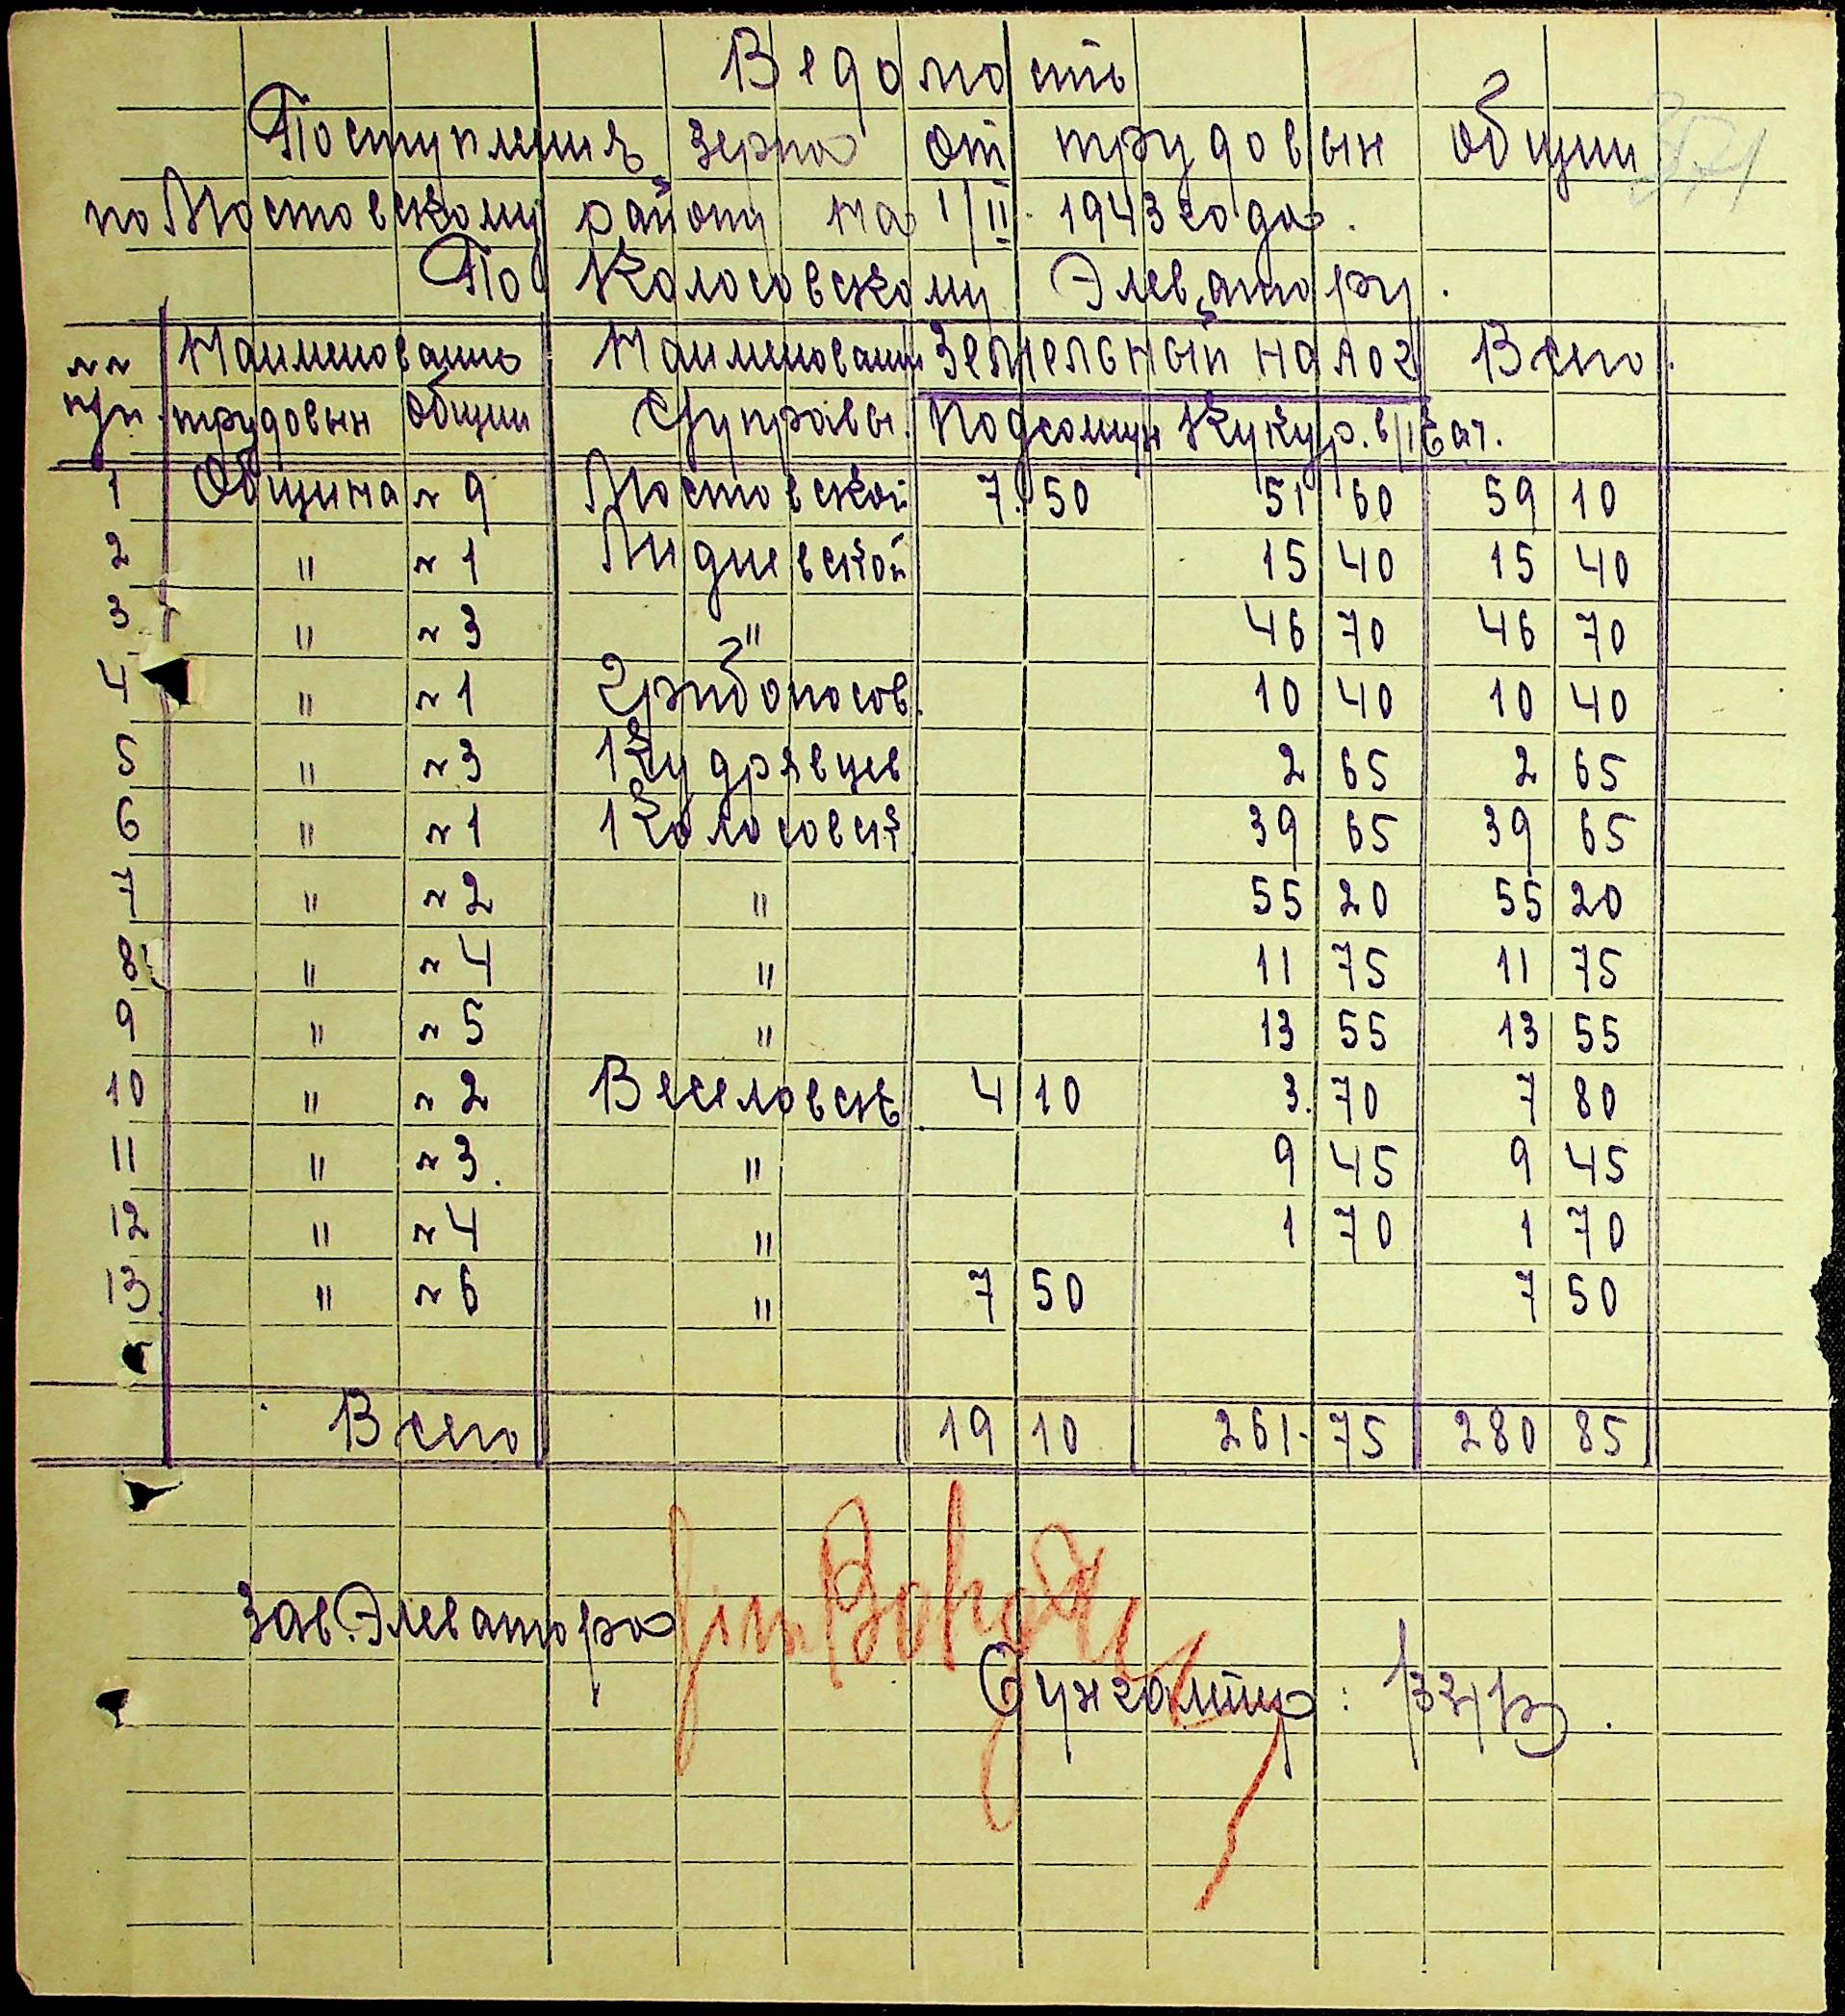 Ведомость
Поступления зерна от трудовых общин
по Мостовскому району на 1/II. 1943 года.
По Колосовскому Элеватору.
№№ Наименование Наименование Земельный налог Всего
п/п. трудовых общин с/управы. Подсолнух Кукур. в/поч.
1 Община № 9 Мостовской 7.50 51 60 59 10
2 " № 1 Лидиевской 15 40 15 40
3 " № 3 " 46 70 46 70
4 " № 1 Грибоносов. 10 40 10 40
5 " № 3 Кудрявцев 2 65 2 65
6 " № 1 Колосовск 39 65 39 65
7 " № 2 " 55 20 55 20
8 " № 4 " 11 75 11 75
9 " № 5 " 13 55 13 55
10 " № 2 Веселовск 4 10 3.70 7 80
11 " № 3. " 9 45 9 45
12 " № 4 " 1 70 1 70
13 " № 6 " 7 50 7 50
Всего 19 10 261-75 280 85
Зав. Элеватора
Бухгалтер: